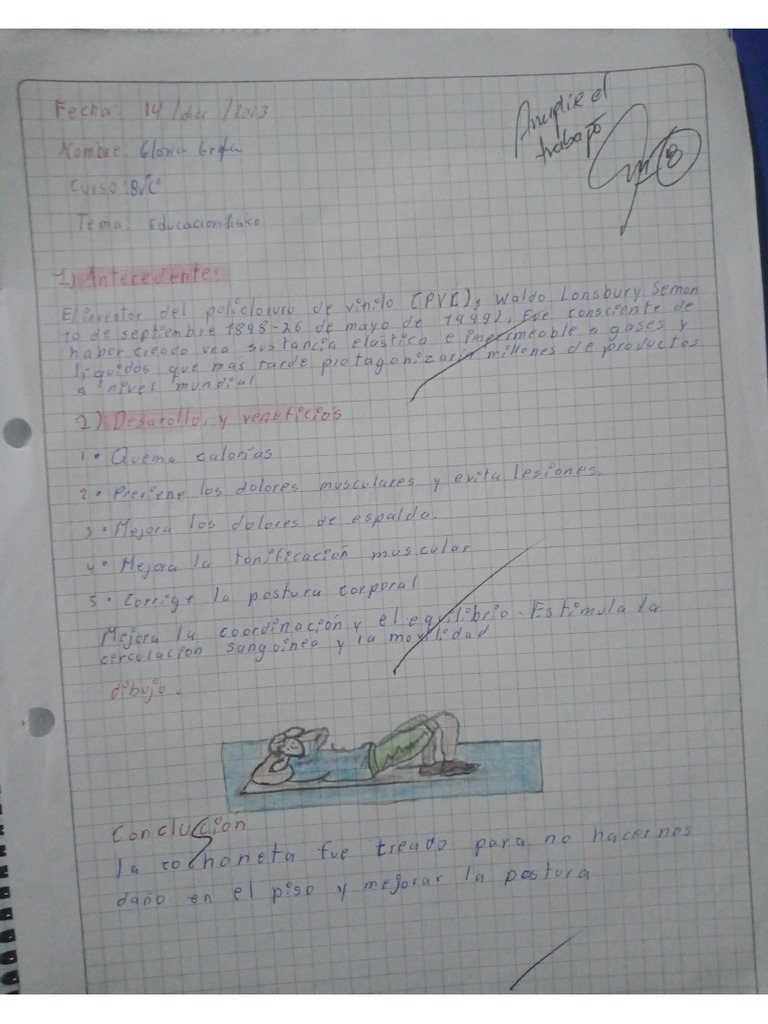 Fecha: 14/dic/2023
Amplie el
trabajo
8
Nombre: Gloria
Curso: 8vo "C"
Tema: Educacion fisico
1) Antecedente:
El inventor del policloruro de vinilo (PVC), Waldo Lonsbury Semon
10 de septiembre 1898-26 de mayo de 1999). Fue consciente de
haber creado una sustancia elastica e impermeable a gases y
liquidos que mas tarde protagonizaria millones de productos
a nivel mundial
2) Desarollo, y veneficios
1 • Quema calorías
2 • Previene los dolores musculares y evita lesiones.
3 • Mejora los dolores de espalda.
4 • Mejora la tonificación muscular
5 • Corrige la postura corporal
Mejora la coordinación y el equilibrio - Estimula la
circulación sanguinea y la movilidad
dibujo.
Conclución
la colchoneta fue creado para no hacernos
daño en el piso y mejorar la postura